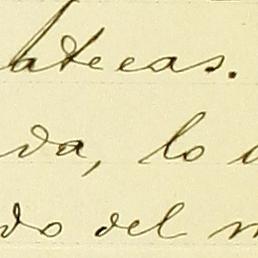 atecas.
da, lo
do del